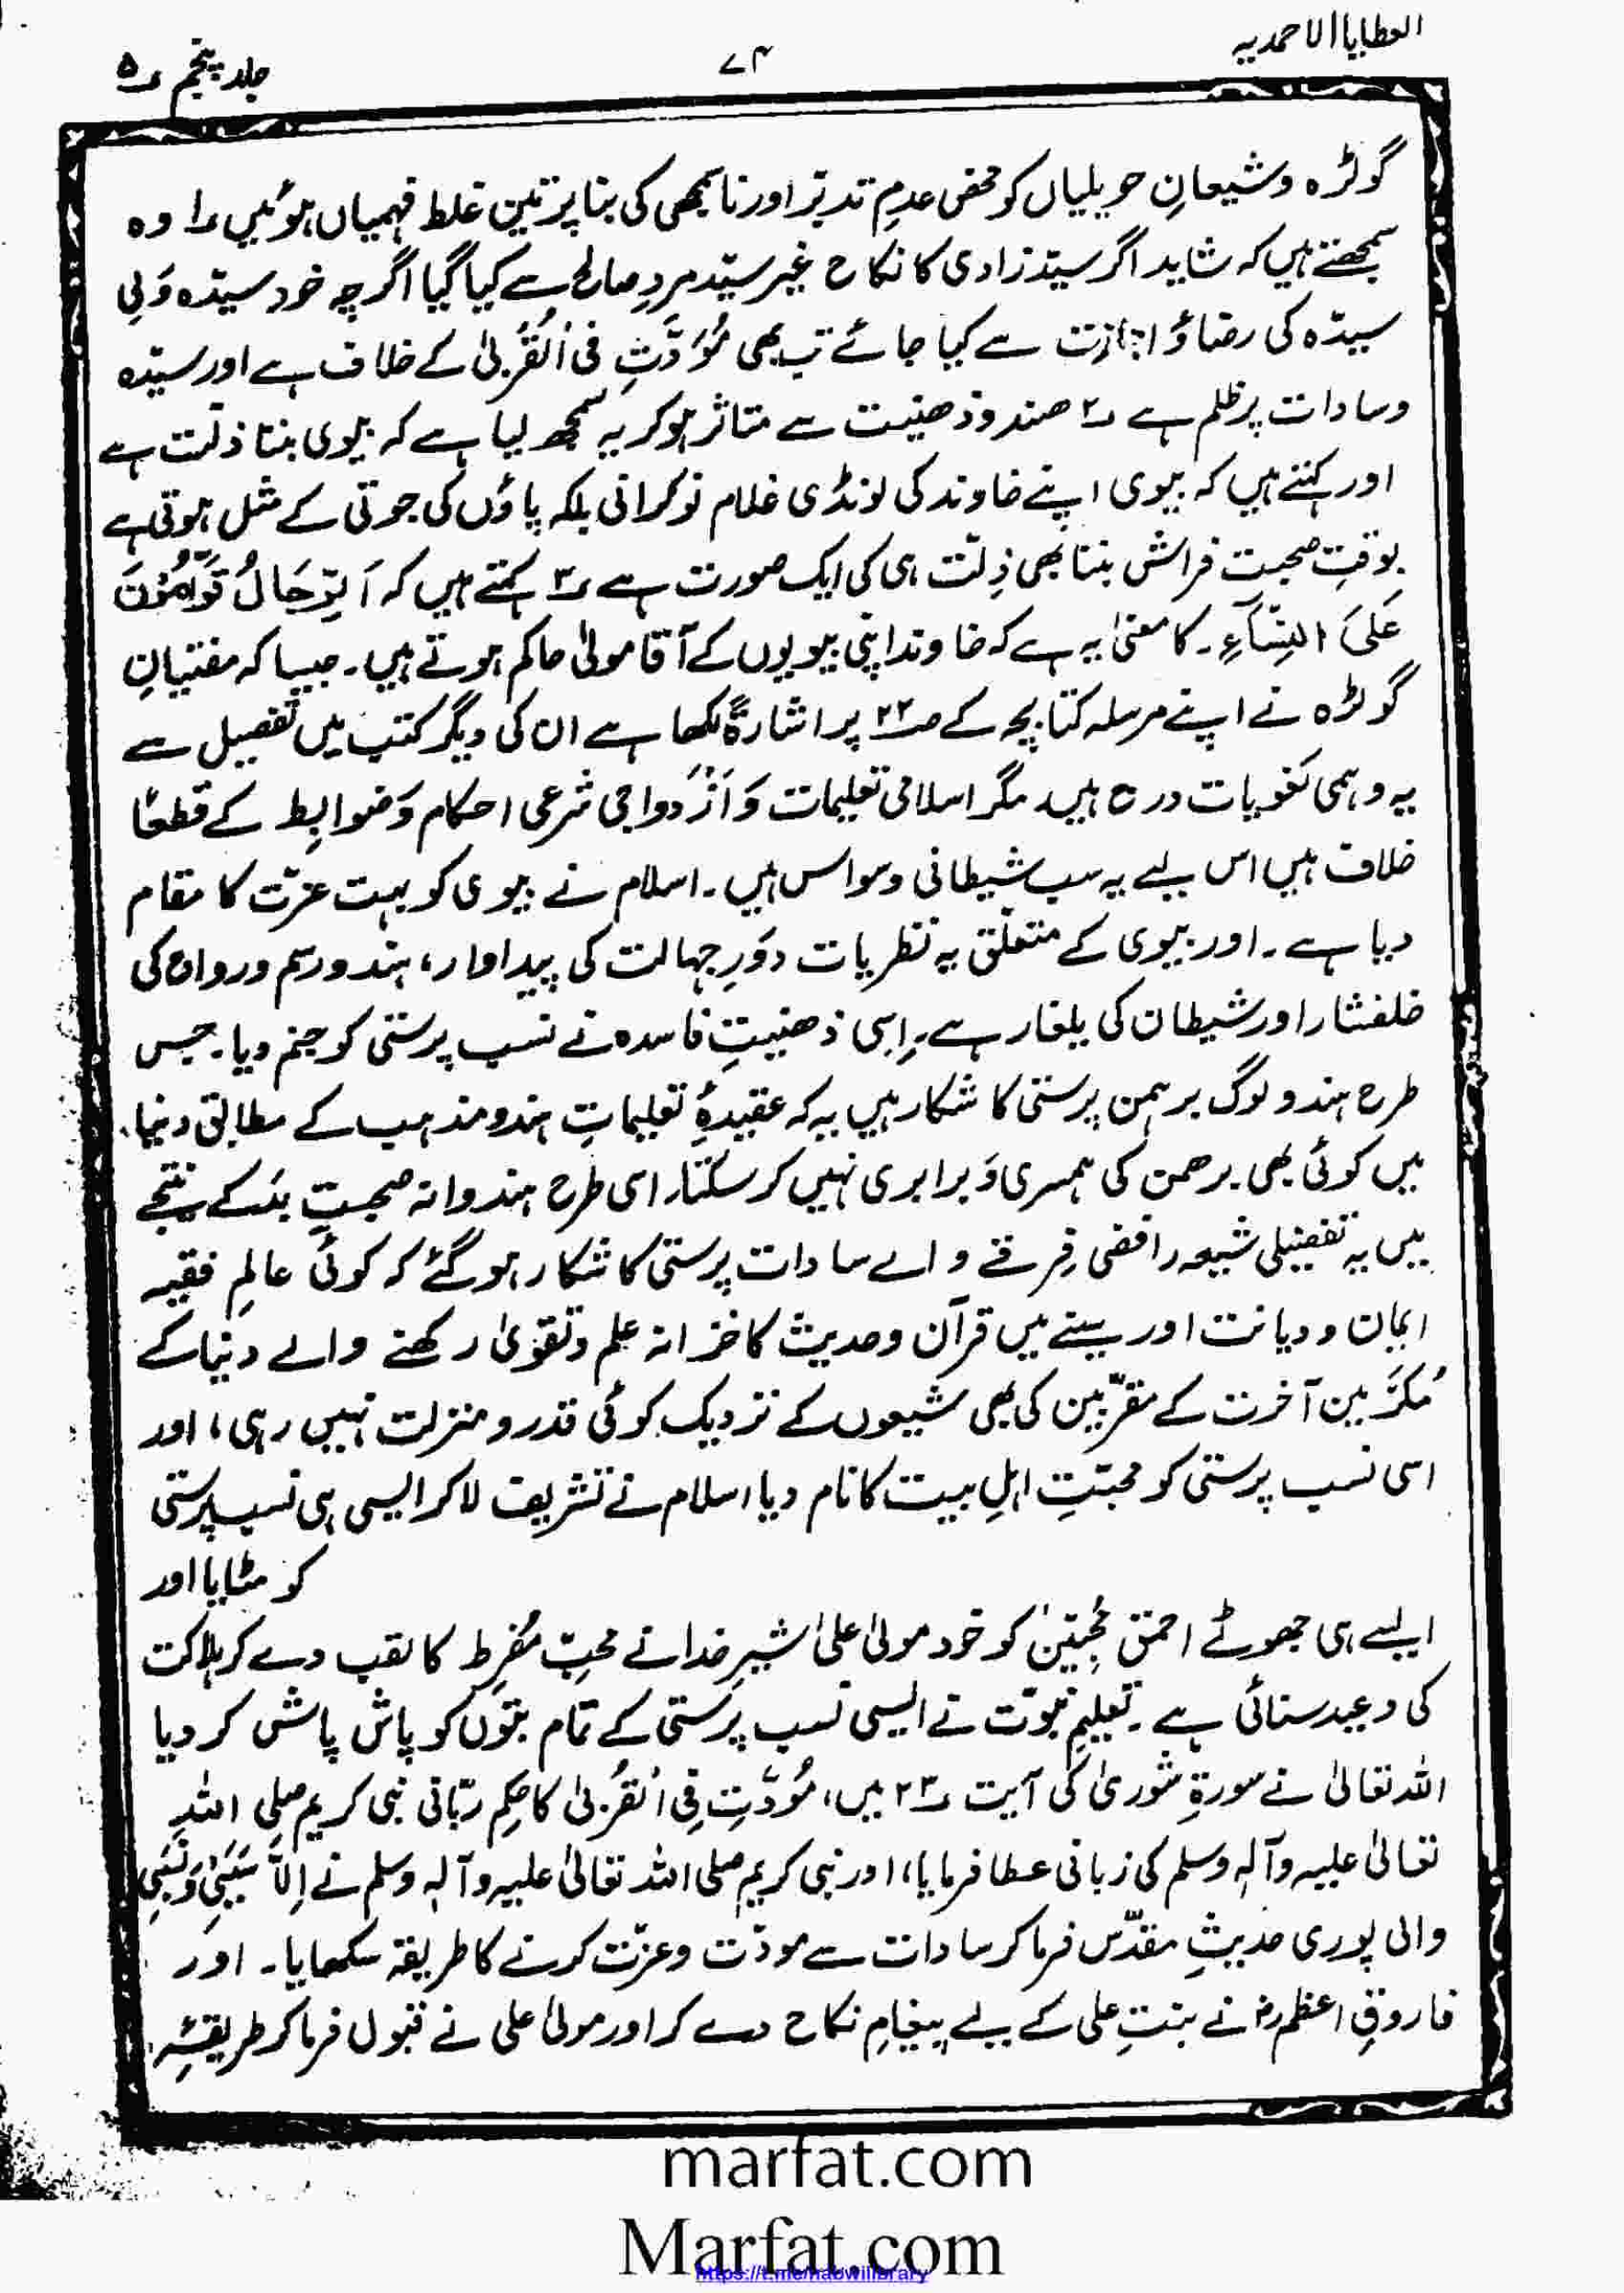 العطایا الاحمدیہ
۷۴
جلد پنجم ۵
گولڑہ و شیعانِ حویلیاں کو محض عدمِ تدبّر اور ناسمجھی کی بنا پر تین غلط فہمیاں ہوئیں ۱ وہ
سمجھتے ہیں کہ شاید اگر سیّد زادی کا نکاح غیر سیّد مردِ صالح سے کیا گیا اگرچہ خود سیّدہ وَلیِ
سیّدہ کی رضا وَ اجازت سے کیا جائے تب بھی مُوَدَّتِ فی اُلقُربیٰ کے خلاف ہے اور سیّدہ
و سادات پر ظلم ہے ۲ ھندو ذھنیت سے متاثر ہو کر یہ سمجھ لیا ہے کہ بیوی بننا ذلّت ہے
اور کہتے ہیں کہ بیوی اپنے خاوند کی لونڈی غلام نوکرانی بلکہ پاؤں کی جوتی کے مثل ہوتی ہے
بوقتِ صحبت فراش بننا بھی ذِلّت ہی کی ایک صورت ہے ۳ کہتے ہیں کہ اَلرِّجَالُ قَوَّامُوْنَ
عَلَی النِّسَآءِ۔ کا معنیٰ یہ ہے کہ خاوند اپنی بیویوں کے آقا مولیٰ حاکم ہوتے ہیں۔ جیسا کہ مفتیانِ
گولڑہ نے اپنے مرسلہ کتابچہ کے صـ۲۲ پر اشارۃً لکھا ہے ان کی دیگر کتب میں تفصیل سے
یہ وہمی لغویات درج ہیں۔ مگر اسلامی تعلیمات وَ اَزْدواجی شرعی احکام وَ ضوابِط کے قطعًا
خلاف ہیں اس لیے یہ سب شیطانی وسواس ہیں۔ اسلام نے بیوی کو بہت عزّت کا مقام
دیا ہے۔ اور بیوی کے متعلّق یہ نظریات دَورِ جہالت کی پیداوار، ہندو رسم و رواج کی
خلفشار اور شیطان کی یلغار ہے۔ اِسی ذھنیتِ فاسدہ نے نسب پرستی کو جنم دیا۔ جس
طرح ہندو لوگ برہمن پرستی کا شکار ہیں یہ کہ عقیدۂِ تعلیماتِ ہندو مذہب کے مطابق دنیا
میں کوئی بھی برھمن کی ہمسری وَ برابری نہیں کر سکتا۔ اسی طرح ہندوانہ صحبتِ بَد کے نتیجے
میں یہ تفضیلی شیعہ رافضی فِرقے والے سادات پرستی کا شکار ہو گئے کہ کوئی عالمِ فقیہ
ایمان و دیانت اور سینے میں قرآن و حدیث کا خزانہ علم و تقویٰ رکھنے والے دنیا کے
مُکرَّمین آخرت کے مقرّبین کی بھی شیعوں کے نزدیک کوئی قدر و منزلت نہیں رہی، اور
اسی نسب پرستی کو محبّتِ اہلِ بیت کا نام دیا، اسلام نے تشریف لا کر ایسی ہی نسب پرستی
کو مٹایا اور
ایسے ہی جھوٹے احمق مُحِبّینْ کو خود مولیٰ علی شیرِ خدا نے محبِّ مُفرِط کا لقب دے کر ہلاکت
کی وعید سنائی ہے۔ تعلیمِ نبوّت نے ایسی نسب پرستی کے تمام بتوں کو پاش پاش کر دیا
اللہ تعالیٰ نے سورۃِ شوریٰ کی آیت ۲۳ میں، مُودَّتِ فِی اُلقُربیٰ کا حکِم ربّانی نبی کریم صلی اللہ
تعالیٰ علیہ وآلہٖ وسلم کی زبانی عطا فرمایا، اور نبی کریم صلی اللہ تعالیٰ علیہ وآلہٖ وسلم نے اِلَّا سَبَبِیْ وَ نَسَبِیْ
والی پوری حدیثِ مقدّس فرما کر سادات سے مودّت و عزّت کرنے کا طریقہ سکھایا۔ اور
فاروقِ اعظم رضؓ نے بنتِ علی کے لیے پیغامِ نکاح دے کر اور مولیٰ علی نے قبول فرما کر طریقۂِ
marfat.com
Marfat.com
https://t.me/nabwilibrary